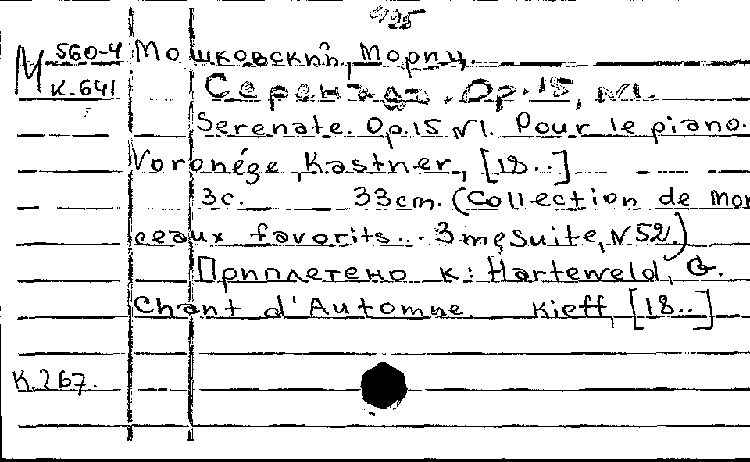 М 560-4 Мошковский, Мориц.
К.641 Серенада. Op.15, №1.
Serenate. Op.15 №1. Pour le piano.
Voronége, Kastner, [18..]
3с. 33cm. (Collection de mor
ceaux favorits... 3me Suite, N52.)
Приплетено к: Harteveld, G.
Chant d'Automne. Kieff, [18..]
К.267.